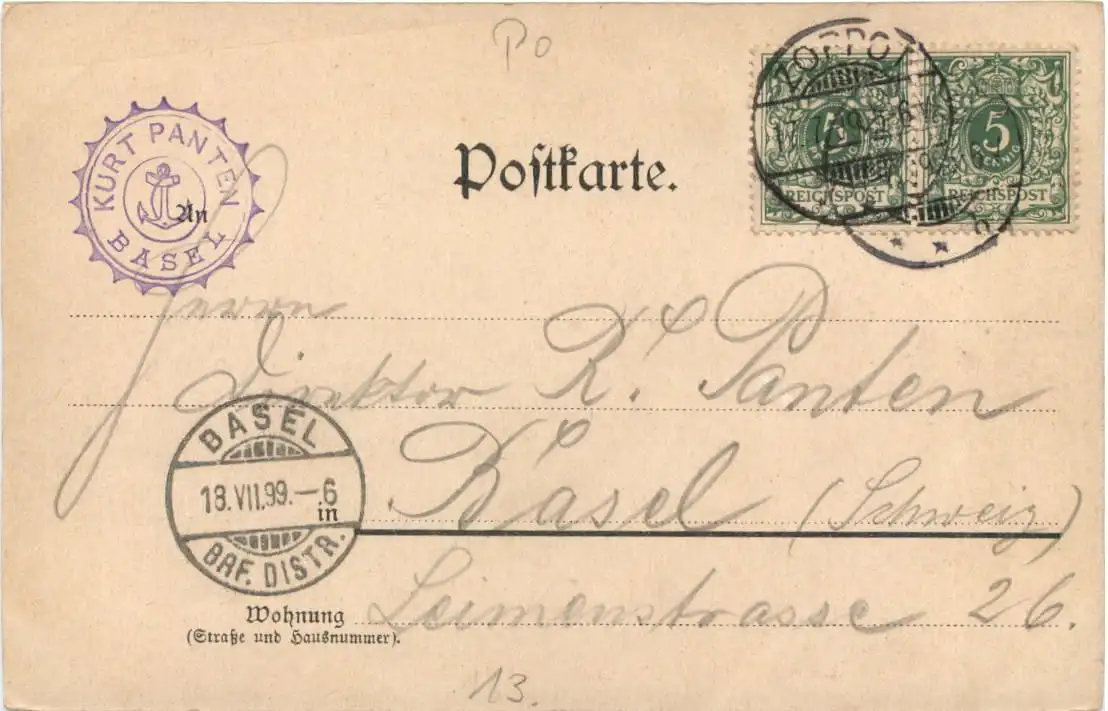 Po
ZOPPOT
5
PFENNIG
REICHSPOST
5
PFENNIG
REICHSPOST
KURT PANTEN
BASEL
Postkarte.
An
Herrn
Direktor K. Panten
BASEL
18.VII.99.–6
BRF. DISTR.
in
Basel (Schweiz)
Wohnung
(Straße und Hausnummer).
Leimenstrasse 26.
13.